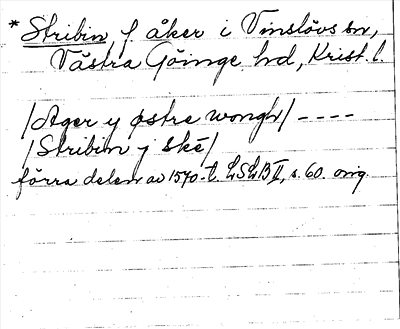 * Stribin f. åker i Vinslövs sn,
Västra Göinge hd, Krist. l.
/Ager y østre wongh/ ----
/Stribin y ske/
förra delen av 1570-t. LSLB II, s. 60. orig.